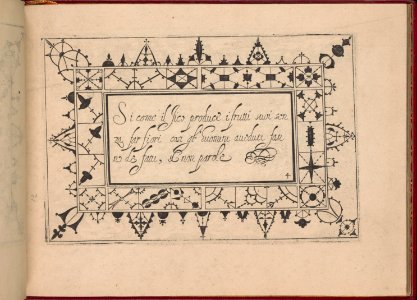 Si come il fico produce i frutti suoi sen
za far fiori cosi gl' huomini
no de fatti, et non parole
4